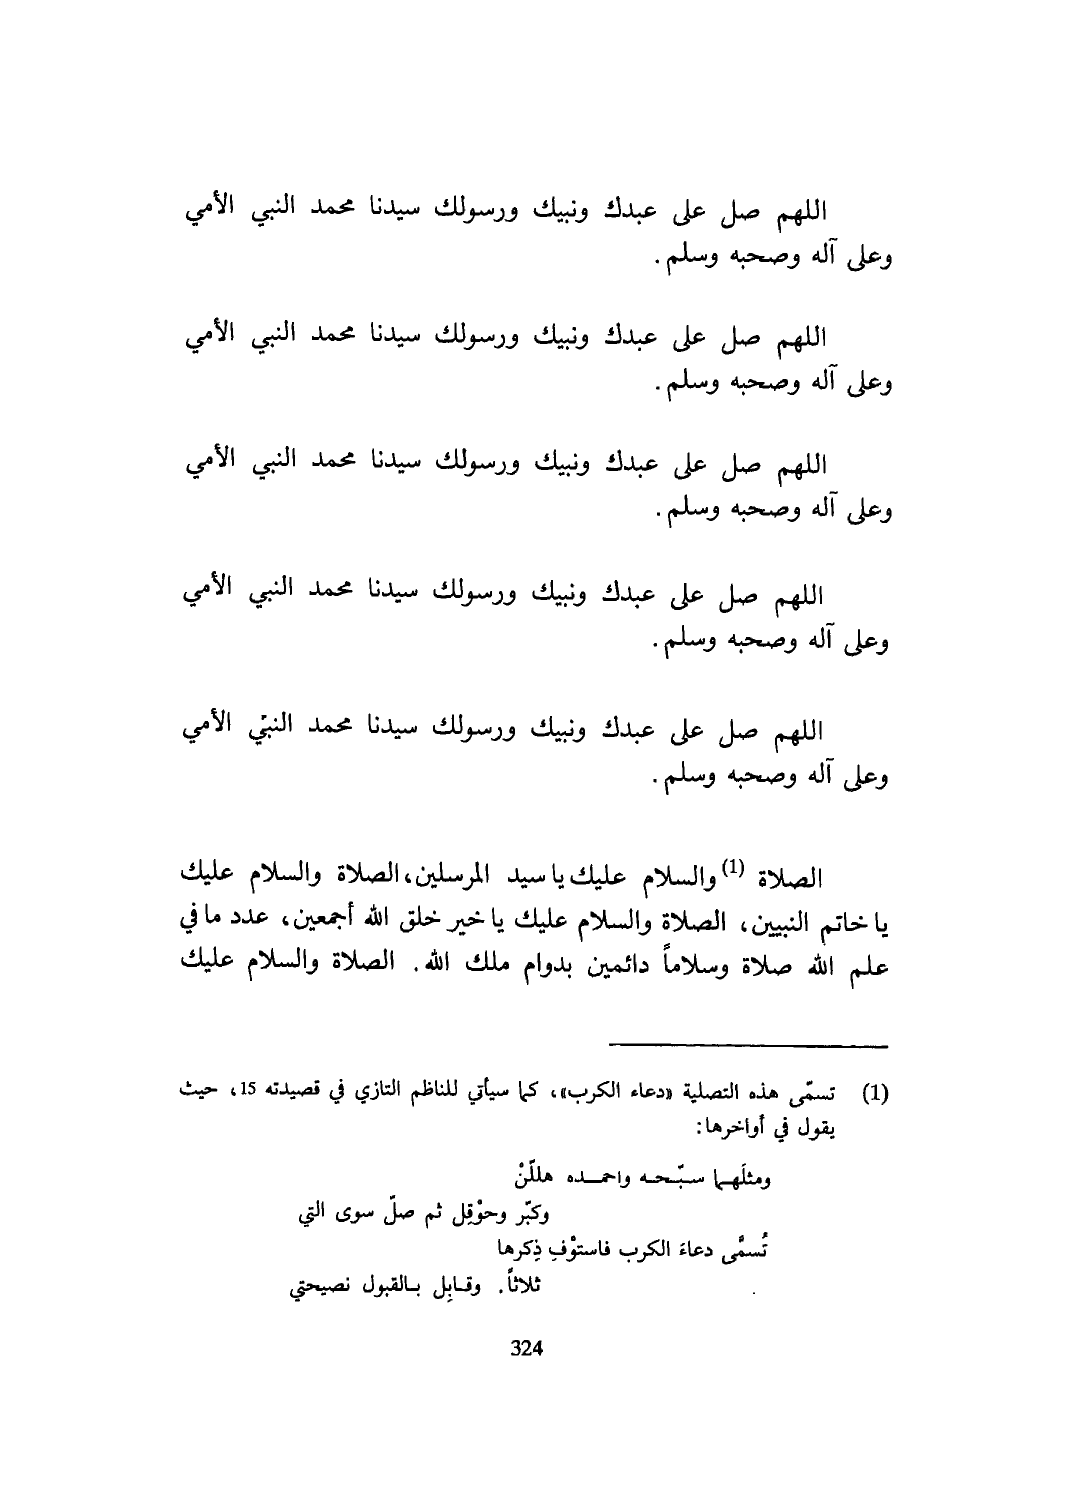 اللهم صل على عبدك ونبيك ورسولك سيدنا محمد النبي الأمي
وعلى آله وصحبه وسلم .
اللهم صل على عبدك ونبيك ورسولك سيدنا محمد النبي الأمي
وعلى آله وصحبه وسلم .
اللهم صل على عبدك ونبيك ورسولك سيدنا محمد النبي الأمي
وعلى آله وصحبه وسلم .
اللهم صل على عبدك ونبيك ورسولك سيدنا محمد النبي الأمي
وعلى آله وصحبه وسلم .
اللهم صل على عبدك ونبيك ورسولك سيدنا محمد النبيّ الأمي
وعلى آله وصحبه وسلم .
الصلاة (1) والسلام عليك يا سيد المرسلين، الصلاة والسلام عليك
يا خاتم النبيين، الصلاة والسلام عليك يا خير خلق الله أجمعين، عدد ما في
علم الله صلاة وسلاماً دائمين بدوام ملك الله. الصلاة والسلام عليك
(1) تسمّى هذه التصلية «دعاء الكرب»، كما سيأتي للناظم التازي في قصيدته 15، حيث
يقول في أواخرها:
ومثلَهـا سبّـحـه واحمـده هللّنْ
وكبّر وحوْقِل ثم صلّ سوى التي
تُسمَّى دعاءَ الكرب فاستوْفِ ذِكرها
ثلاثاً. وقـابِل بـالقبول نصيحتي
324